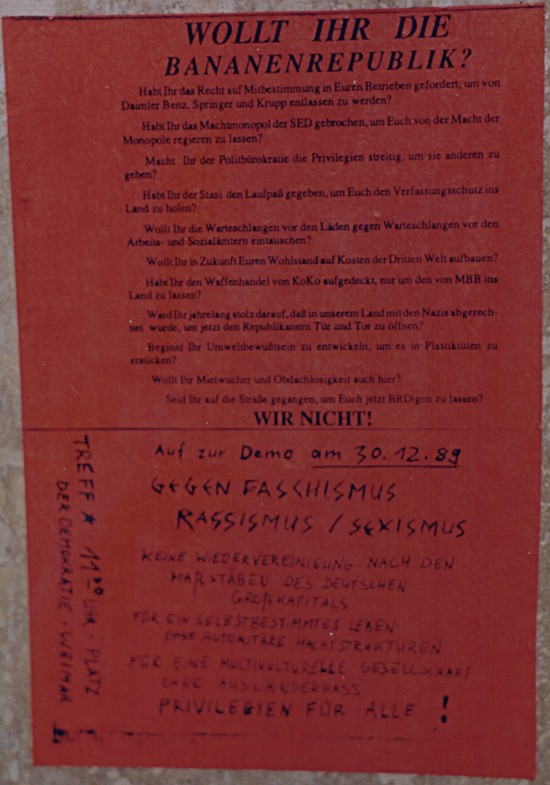 WOLLT IHR DIE
BANANENREPUBLIK?
Habt Ihr das Recht auf Mitbestimmung in Euren Betrieben gefordert, um von
Daimler Benz, Springer und Krupp entlassen zu werden?
Habt Ihr das Machtmonopol der SED gebrochen, um Euch von der Macht der
Monopole regieren zu lassen?
Macht Ihr der Politbürokratie die Privilegien streitig, um sie anderen zu
geben?
Habt Ihr der Stasi den Laufpaß gegeben, um Euch den Verfassungsschutz ins
Land zu holen?
Wollt Ihr die Warteschlangen vor den Läden gegen Warteschlangen vor den
Arbeits- und Sozialämtern eintauschen?
Wollt Ihr in Zukunft Euren Wohlstand auf Kosten der Dritten Welt aufbauen?
Habt Ihr den Waffenhandel von KoKo aufgedeckt, nur um den von MBB ins
Land zu lassen?
Ward Ihr jahrelang stolz darauf, daß in unserem Land mit den Nazis abgerech-
net wurde, um jetzt den Republikanern Tür und Tor zu öffnen?
Beginnt Ihr Umweltbewußtsein zu entwickeln, um es in Plastiktüten zu
ersticken?
Wollt Ihr Mietwucher und Obdachlosigkeit auch hier?
Seid Ihr auf die Straße gegangen, um Euch jetzt BRDigen zu lassen?
WIR NICHT!
Auf zur Demo am 30.12.89
GEGEN FASCHISMUS
RASSISMUS / SEXISMUS
KEINE WIEDERVEREINIGUNG NACH DEN
MAßSTABEN DES DEUTSCHEN
GROßKAPITALS
FÜR EIN SELBSTBESTIMMTES LEBEN
OHNE AUTORITÄRE MACHTSTRUKTUREN
FÜR EINE MULTIKULTURELLE GESELLSCHAFT
OHNE AUSLÄNDERHASS
PRIVILEGIEN FÜR ALLE !
TREFF ★ 11⁰⁰ UHR · PLATZ
DER DEMOKRATIE · WEIMAR